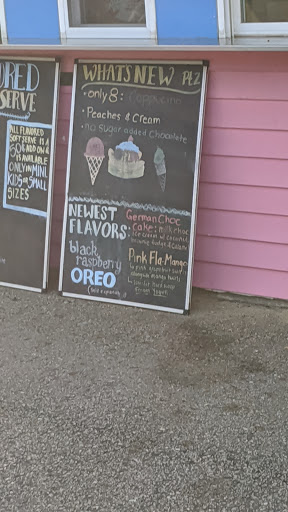 ORED
SERVE
All FLAVORED
SOFT SERVE IS A
50¢ ADD ON &
IS AVAILABLE
ONLY IN MINI
KIDS OR SMALL
SIZES
WHATS NEW
• only 8:
• Peaches & Cream
• no sugar added Chocolate
NEWEST
FLAVORS:
black
raspberry
OREO
German Choc
Cake: milk choc
ice cream w/ coconut
Pink Fla Mango